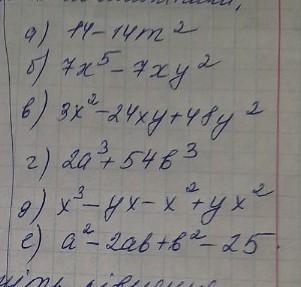 а) 14-14m²
б) 7x⁵-7xy²
в) 3x²-24xy+48y²
г) 2a³+54b³
д) x³-yx-x²+yx²
е) a²-2ab+b²-25